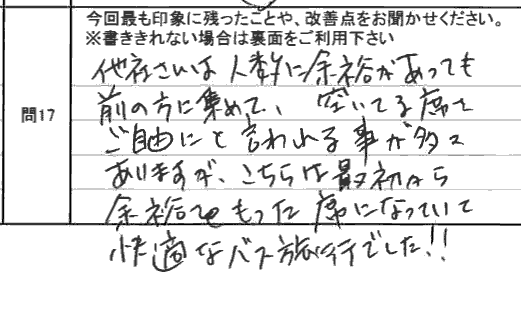 今回最も印象に残ったことや、改善点をお聞かせください。
※書ききれない場合は裏面をご利用下さい
問17
他社さんは人数に余裕があっても
前の方に集めて、空いてる席を
ご自由にと言われる事が多々
ありますが、こちらは最初から
余裕をもった席になっていて
快適なバス旅行でした!!